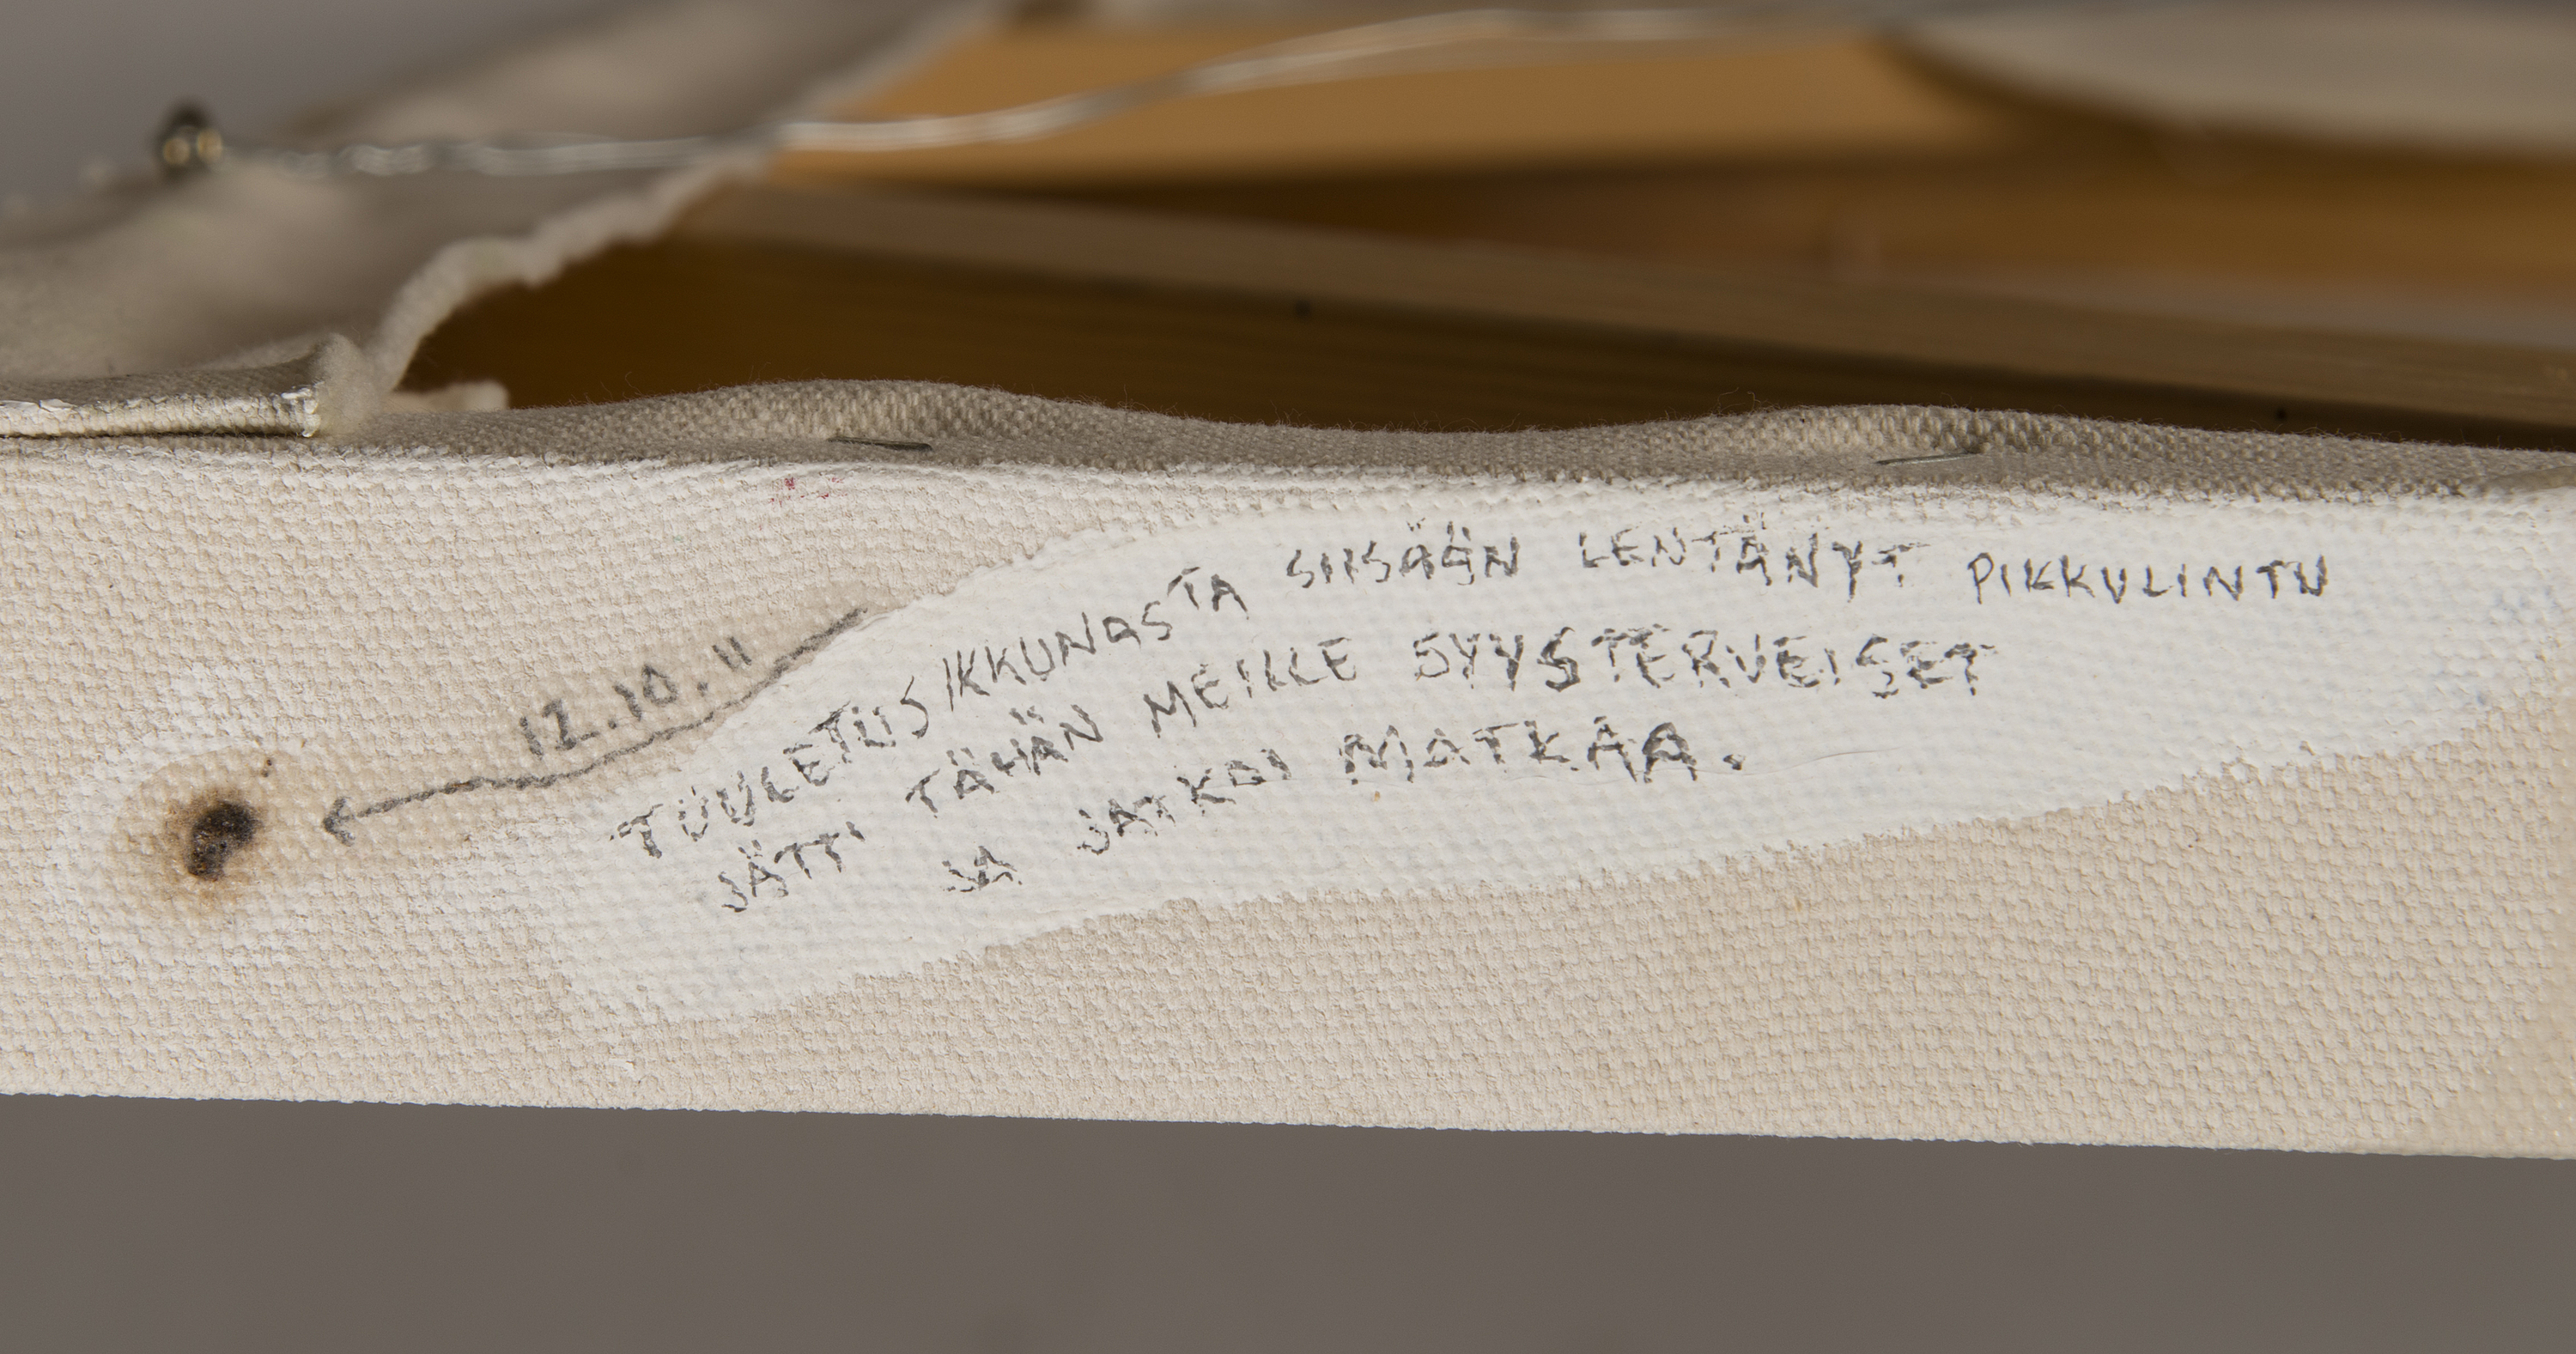 12.10.11
TUULETUSIKKUNASTA SIISÄÄN LENTÄNYT PIKKULINTU
JÄTTI TÄHÄN MEILLE SYYSTERVEISET
JA JATKOI MATKAA.